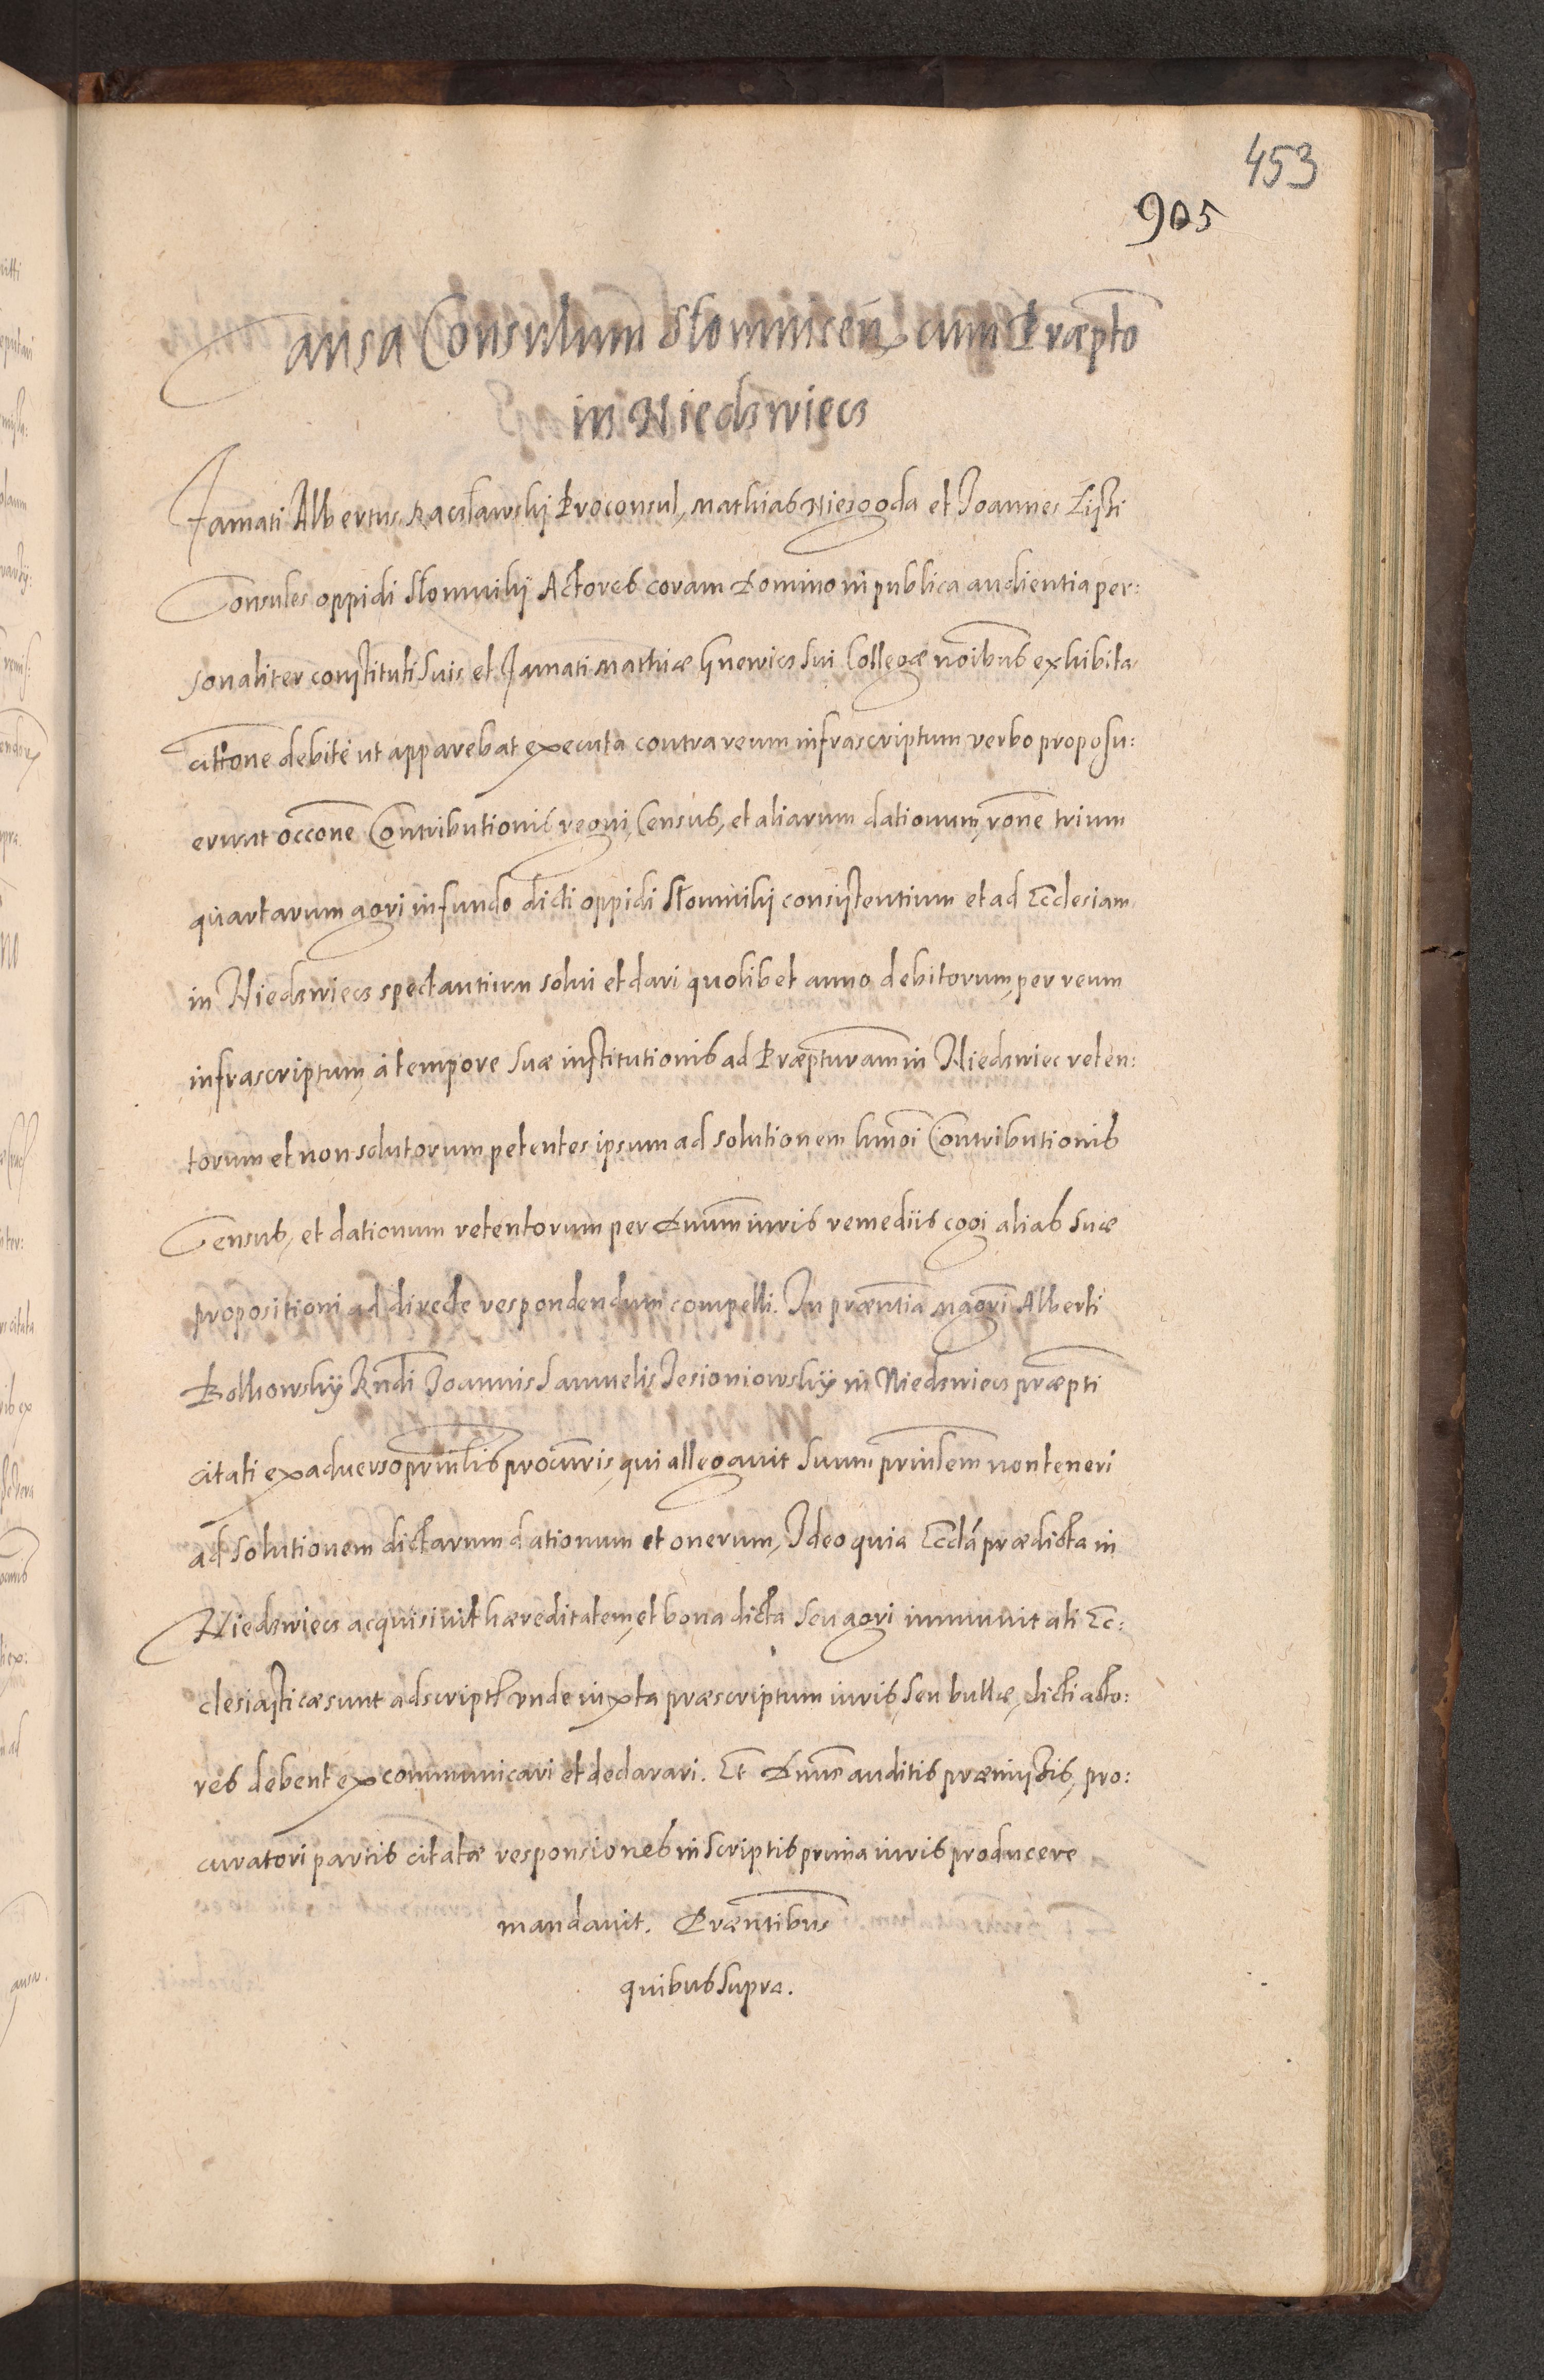 453
905
Causa Consulum Słomnicen̄ cum Præpto
in Niedzwiecz
Famati Albertus Racżławskÿ Proconsul, Mathias Niezgoda et Joannes Listi
Consules oppidi Słomnikÿ Actores coram Domino in publica audientia per:
sonaliter constituti suis et famati Mathiæ Gnewicz sui Collegæ noībus exhibita
cittone debite ut apparebat executa contra reum infrascriptum verbo proposu:
erunt occōne Contributionis regni, Census, et aliarum dationum, rōne trium
quartarum agri in fundo dicti oppidi Słomnikÿ consistentium et ad Ecclesiam
in Niedzwiecz spectantium solui et dari quolibet anno debitorum, per reum
infrascriptum, à tempore suæ institutionis ad Præpturam in Niedzwiec reten:
torum et non solutorum petentes ipsum ad solutionem hmōi Contributionis
Census, et dationum retentorum per Dnum iuris remediis cogi alias suæ
propositioni ad directe respondendum compelli. In præntia Magrī Alberti
Bolkowskÿ Rndi Joannis Samuelis Jesioniowskÿ in Niedzwiecz præpti
citati ex aduerso prinlis procuris, qui allegauit suum prinlem non teneri
ad solutionem dictarum dationum et onerum, Ideo quia Eccla prædicta in
Niedzwiecz acquisiuit hæreditatem, et bona dicta seu agri immunitati Ec:
clesiasticæ sunt adscripti vnde iuxta præscriptum iuris, seu bullæ, dicti acto:
res debent excommunicari et declarari. Et Dnus auditis præmissis, pro:
curatori partis citatæ responsiones in scriptis prima iuris producere
mandauit. Præntibus
quibus supra.